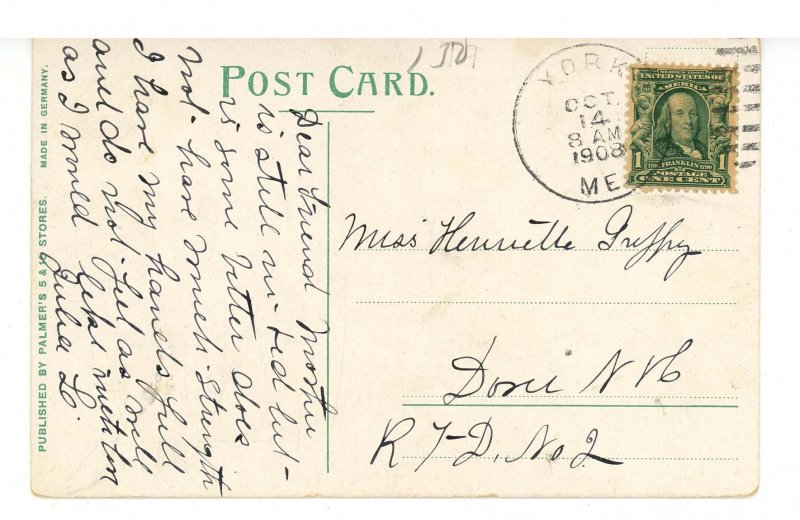 POST CARD.
YORK
OCT.
14
8 AM
1908
ME
UNITED STATES OF
AMERICA
1 FRANKLIN 1
POSTAGE
ONE CENT
Dear friend Mother
is still in bed but
is some better does
not have much strength
I have my hands full
and do not feel as well
as I would like
Julia L.
Miss Henriette
Dover N H
R F D. No 2
PUBLISHED BY PALMER'S 5 & 10 STORES. MADE IN GERMANY.